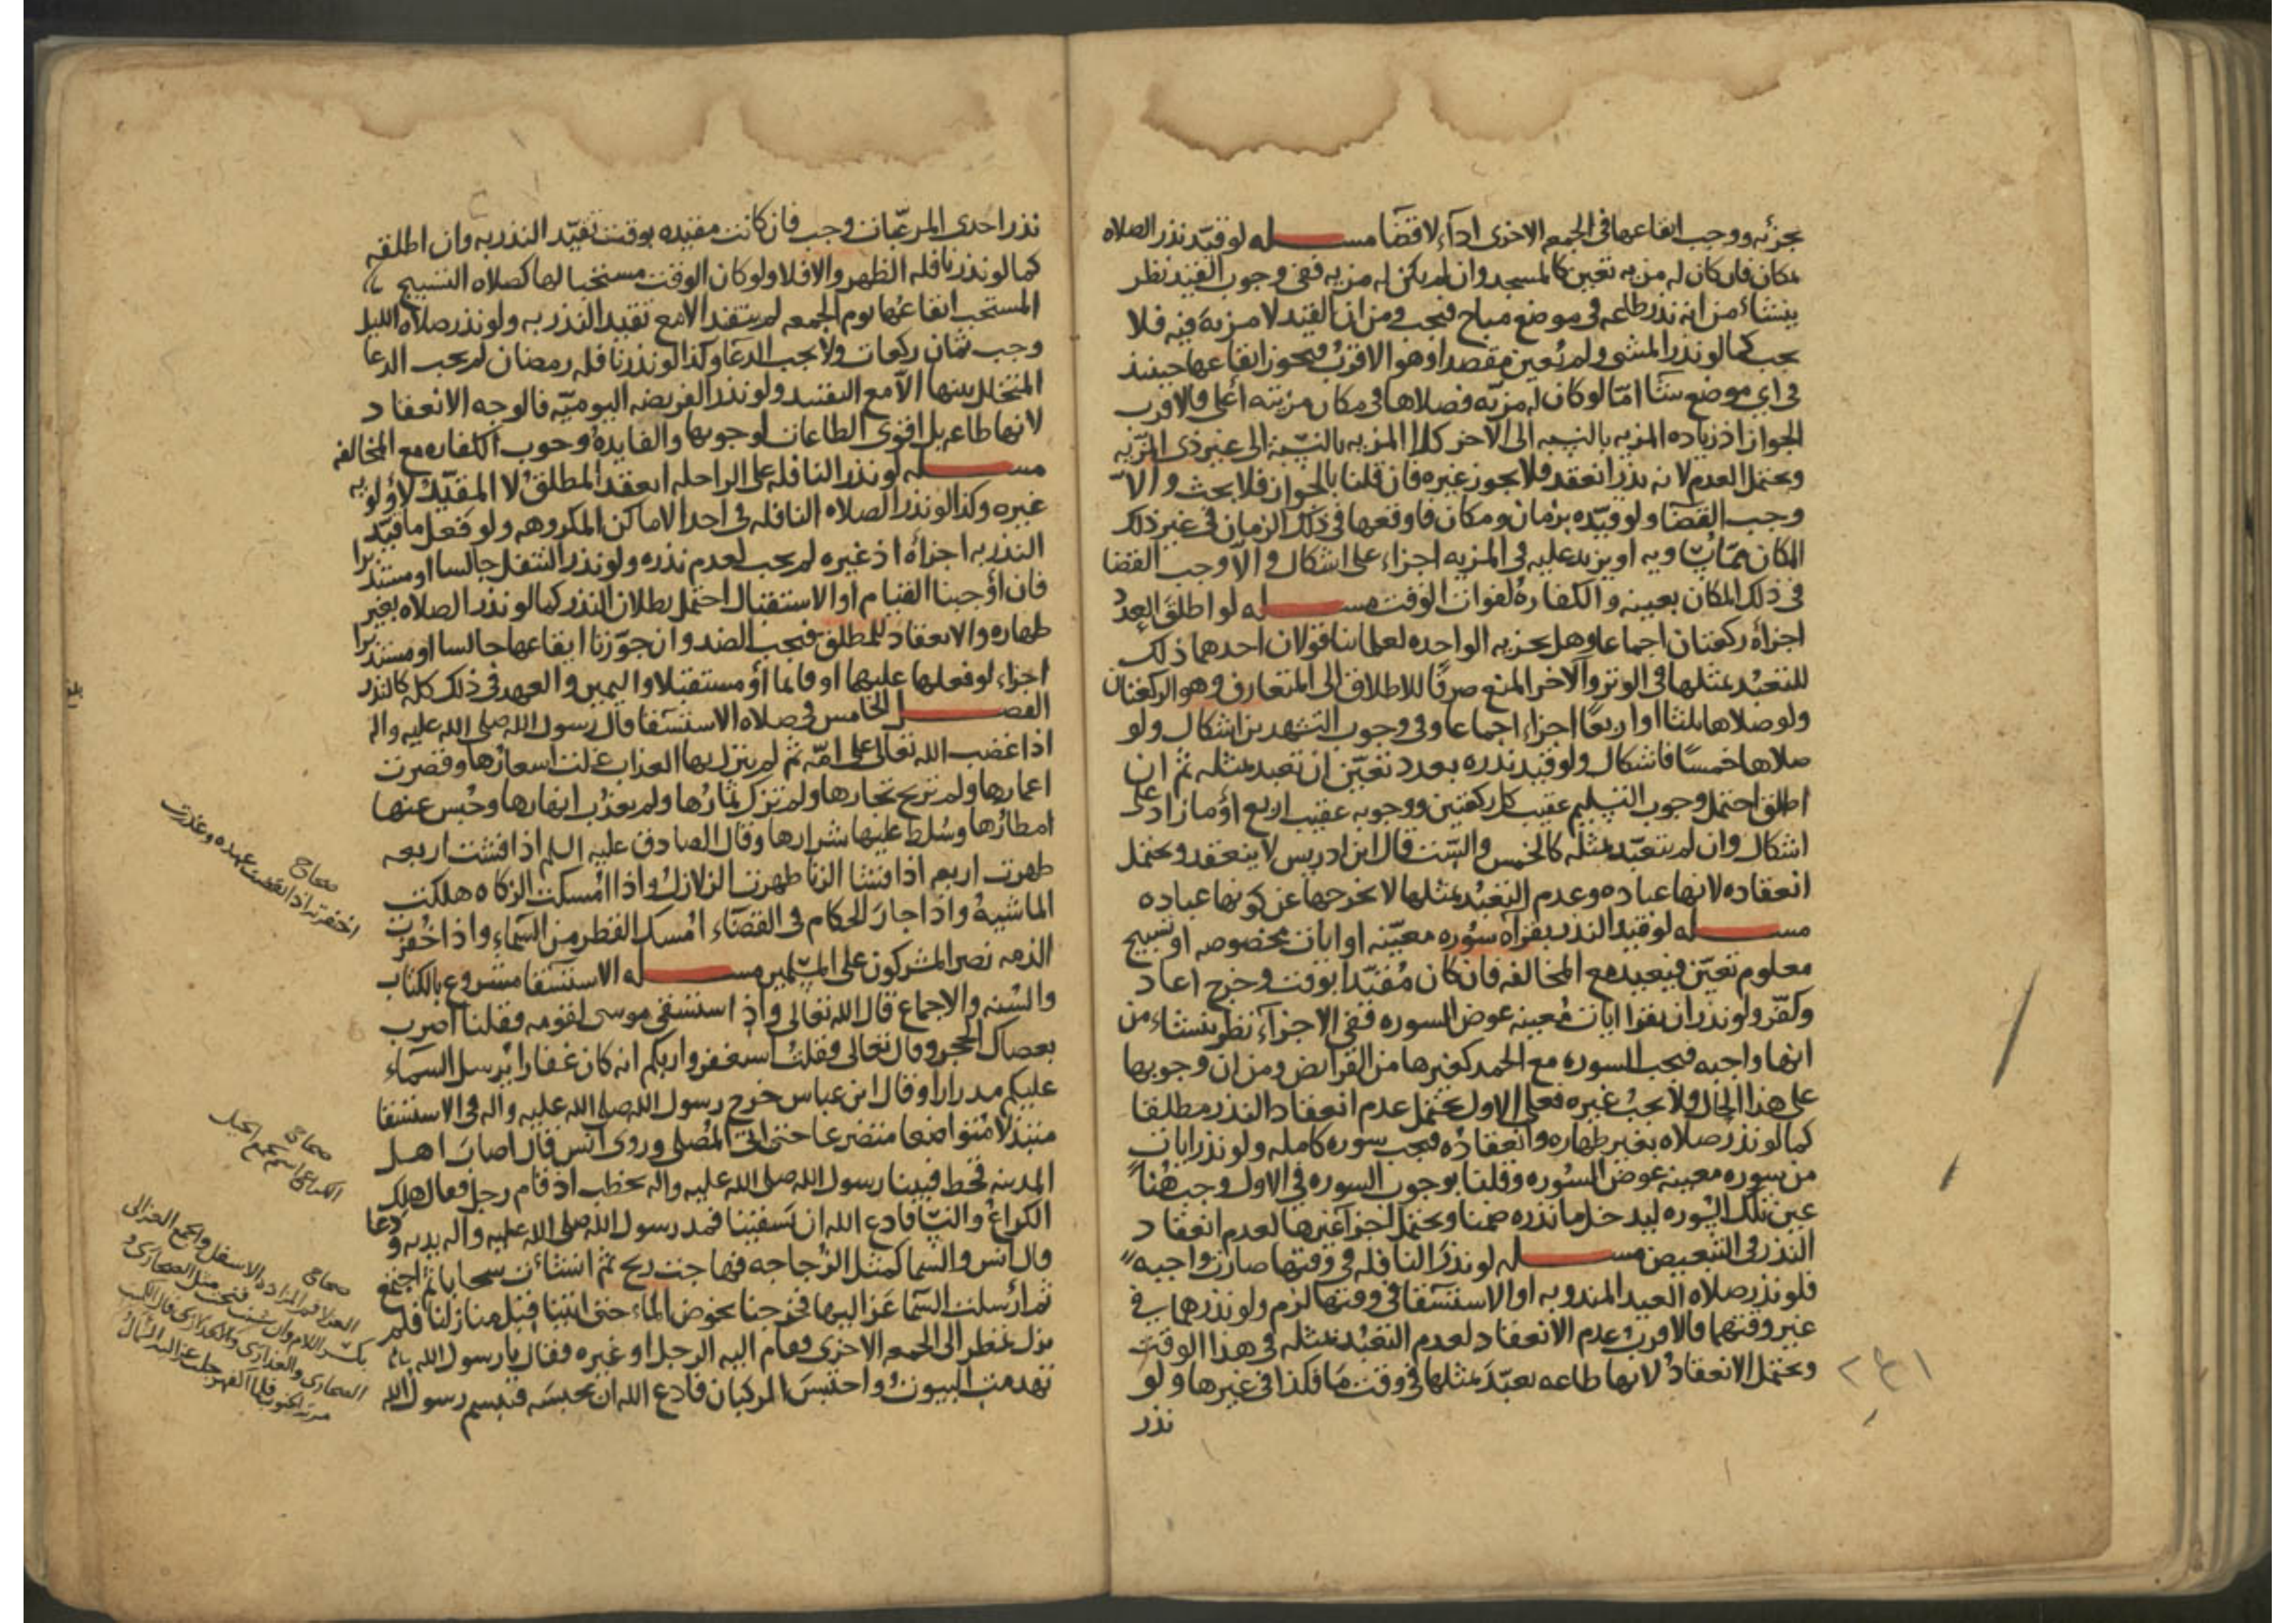 يجزئه ووجب ايقاعها في الجمعه الاخرى اداء لا قضا مسله لو قيد نذر الصلاه
بمكان فان كان له مزيه تعين كالمسجد وان لم يكن له مزيه ففي وجوب القيد نظر
ينشاء من انه نذر طاعه في موضع مباح فيجب ومن ان القيد لا مزية فيه فلا
يجب كما لو نذر المشي ولم يعين مقصدا وهو الاقرب فيجوز ايقاعها حينئذ
في اي موضع شا امّا لو كان له مزيّه فصلاها في مكان مزيته اعلى فالاقرب
الجواز اذ زياده المزيه بالنسبه الى الاخر كالمزيه بالنسبة الى غير ذي المزيه
ويحتمل العدم لانه نذر انعقد فلا يجوز غيره فان قلنا بالجواز فلا بحث والا
وجب القضا ولو قيّده بزمان ومكان فاوقعها في ذلك الزمان في غير ذلك
المكان مما يساويه او يزيد عليه في المزيه اجزاء على اشكال والا وجب القضا
في ذلك المكان بعينه والكفارة لفوات الوقت مسله لو اطلق العدد
اجزأه ركعتان اجماعا وهل يجزيه الواحده لعلمائنا قولان احدهما ذلك
للتعبد بمثلها في الوتر والاخر المنع صرفًا للاطلاق الى المتعارف وهو الركعتان
ولو صلاها ثلثا او اربعًا اجزاء اجماعا وفي وجوب التشهدين اشكال ولو
صلاها خمسًا فاشكال ولو قيد نذره بعدد تعيّن ان تعبد بمثله ثم ان
اطلق احتمل وجوب التسليم عقيب كل ركعتين ووجوبه عقيب اربع او ما زاد على
اشكال وان لم يتعبّد بمثله كالخمس والست قال ابن ادريس لا ينعقد ويحتمل
انعقاده لانها عباده وعدم التعبد بمثلها لا يخرجها عن كونها عباده
مسله لو قيد النذر بقراه سوره معيّنه او ايات مخصوصه او تسبيح
معلوم تعيّن فيعيد مع المخالفه فان كان مُقيّدا بوقت وخرج اعاد
وكفّر ولو نذر ان يقرا ايات معينه عوض السوره ففي الاجزاء نظر ينشاء من
انها واجبه فيجب السوره مع الحمد كغيرها من الفرائض ومن ان وجوبها
على هذا الحال ولا يجب غيره فعلى الاول يحتمل عدم انعقاد النذر مطلقا
كما لو نذر صلاه بغير طهاره وانعقاده فيجب سوره كامله ولو نذر ايات
من سوره معينه عوض السوره وقلنا بوجوب السوره في الاول وجب هنا
عين تلك السوره ليدخل ما نذره ضمنا ويحتمل اجزا غيرها لعدم انعقاد
النذر في التبعيض مسله لو نذر النافله في وقتها صارت واجبه
فلو نذر صلاه العيد المندوبه او الاستسقا في وقتها لزم ولو نذرهما في
غير وقتهما فالاقرب عدم الانعقاد لعدم التعبد بمثله في هذا الوقت
ويحتمل الانعقاد لانها طاعه تعبّد بمثلها في وقت ما فكذا في غيرها ولو
نذر
نذر احدى المرغبات وجب فان كانت مقيده بوقت تقيّد النذر به وان اطلقه
كما لو نذر نافله الظهر والا فلا ولو كان الوقت مستحبا لها كصلاه التسبيح
المستحب ايقاعها يوم الجمعه لم يتقيد الا مع تقييد النذر به ولو نذر صلاه الليل
وجب ثمان ركعات ولا يجب الدعا وكذا لو نذر نافله رمضان لم يجب الدعا
المتخلل بينها الا مع التقييد ولو نذر الفريضه اليوميّه فالوجه الانعقاد
لانها طاعه بل اقوى الطاعات لوجوبها والفايدة وجوب الكفاره مع المخالفه
مسله لو نذر النافله على الراحله انعقد المطلق لا المقيّد لاولويه
غيره وكذا لو نذر الصلاه النافله في احد الاماكن المكروهه ولو فعل ما قيّد
النذر به اجزاه اذ غيره لم يجب لعدم نذره ولو نذر التنفل جالسا او مستدبرا
فان اوجبنا القيام او الاستقبال احتمل بطلان النذر كما لو نذر الصلاه بغير
طهاره والانعقاد للمطلق فيجب الضد وان جوّزنا ايقاعها جالسا او مستدبرا
اجزاء لو فعلها عليهما او قائما او مستقبلا واليمين والعهد في ذلك كله كالنذر
الفصل الخامس في صلاه الاستسقا قال رسول الله صلى الله عليه واله
اذا غضب الله تعالى على امّه ثم لم ينزل بها العذاب غلت اسعارها وقصرت
اعمارها ولم تربح تجارها ولم تزك ثمارها ولم يعذب انهارها وحبس عنها
امطارها وسلط عليها شرارها وقال الصادق عليه السلم اذا فشت اربعه
ظهرت اربع اذا فشا الزنا ظهرت الزلازل واذا امسكت الزكاه هلكت
الماشية واذا جار الحكام في القضاء امسك القطر من السماء واذا خفرت
الذمه نصر المشركون على المسلمين مسله الاستسقا مشروع بالكتاب
والسنه والاجماع قال الله تعالى واذ استسقى موسى لقومه فقلنا اضرب
بعصاك الحجر وقال تعالى فقلت استغفروا ربكم انه كان غفارا يرسل السماء
عليكم مدرارا وقال ابن عباس خرج رسول الله صلى الله عليه واله في الاستسقا
متبذلا متواضعا متضرعا حتى اتى المصلى وروى انس قال اصاب اهل
المدينه قحط فبينا رسول الله صلى الله عليه واله يخطب اذ قام رجل فقال هلك
الكراع والشا فادع الله ان يسقينا فمد رسول الله صلى الله عليه واله يديه ودعا
قال انس والسما كمثل الزجاجه فهاجت ريح ثم انشات سحابا ثم اجتمع
ثم ارسلت السما عزاليها فخرجنا نخوض الماء حتى اتينا منازلنا فلم
نزل نمطر الى الجمعه الاخرى فقام اليه الرجل او غيره فقال يا رسول الله
تهدمت البيوت واحتبس الركبان فادع الله ان يحبسه فتبسم رسول الله
صحاح
اخفرته اذا نقضت عهده وغدرت
صحاح
الكراع اسم يجمع الخيل
صحاح
العزلا فم المزاده الاسفل والجمع العزالى
بكسر اللام وان شئت فتحت مثل الصحارى و
الصحارى والعذارى والعذارى قال الكميت